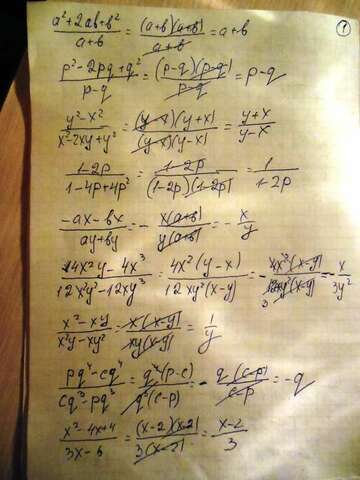 ①
(a²+2ab+b²)/(a+b) = ((a+b)(a+b))/(a+b) = a+b
(p²-2pq+q²)/(p-q) = ((p-q)(p-q))/(p-q) = p-q
(y²-x²)/(x²-2xy+y²) = ((y-x)(y+x))/((y-x)(y-x)) = (y+x)/(y-x)
(1-2p)/(1-4p+4p²) = (1-2p)/((1-2p)(1-2p)) = 1/(1-2p)
(-ax-bx)/(ay+by) = -(x(a+b))/(y(a+b)) = -x/y
(14x²y-4x³)/(12x²y²-12xy³) = (4x²(y-x))/(12xy²(x-y)) = -(4x²(x-y))/(12xy²(x-y)) = -x/(3y²)
(x²-xy)/(x²y-xy²) = (x(x-y))/(xy(x-y)) = 1/y
(pq⁴-cq⁴)/(cq³-pq³) = (q⁴(p-c))/(q³(c-p)) = -(q(c-p))/(c-p) = -q
(x²-4x+4)/(3x-6) = ((x-2)(x-2))/(3(x-2)) = (x-2)/3